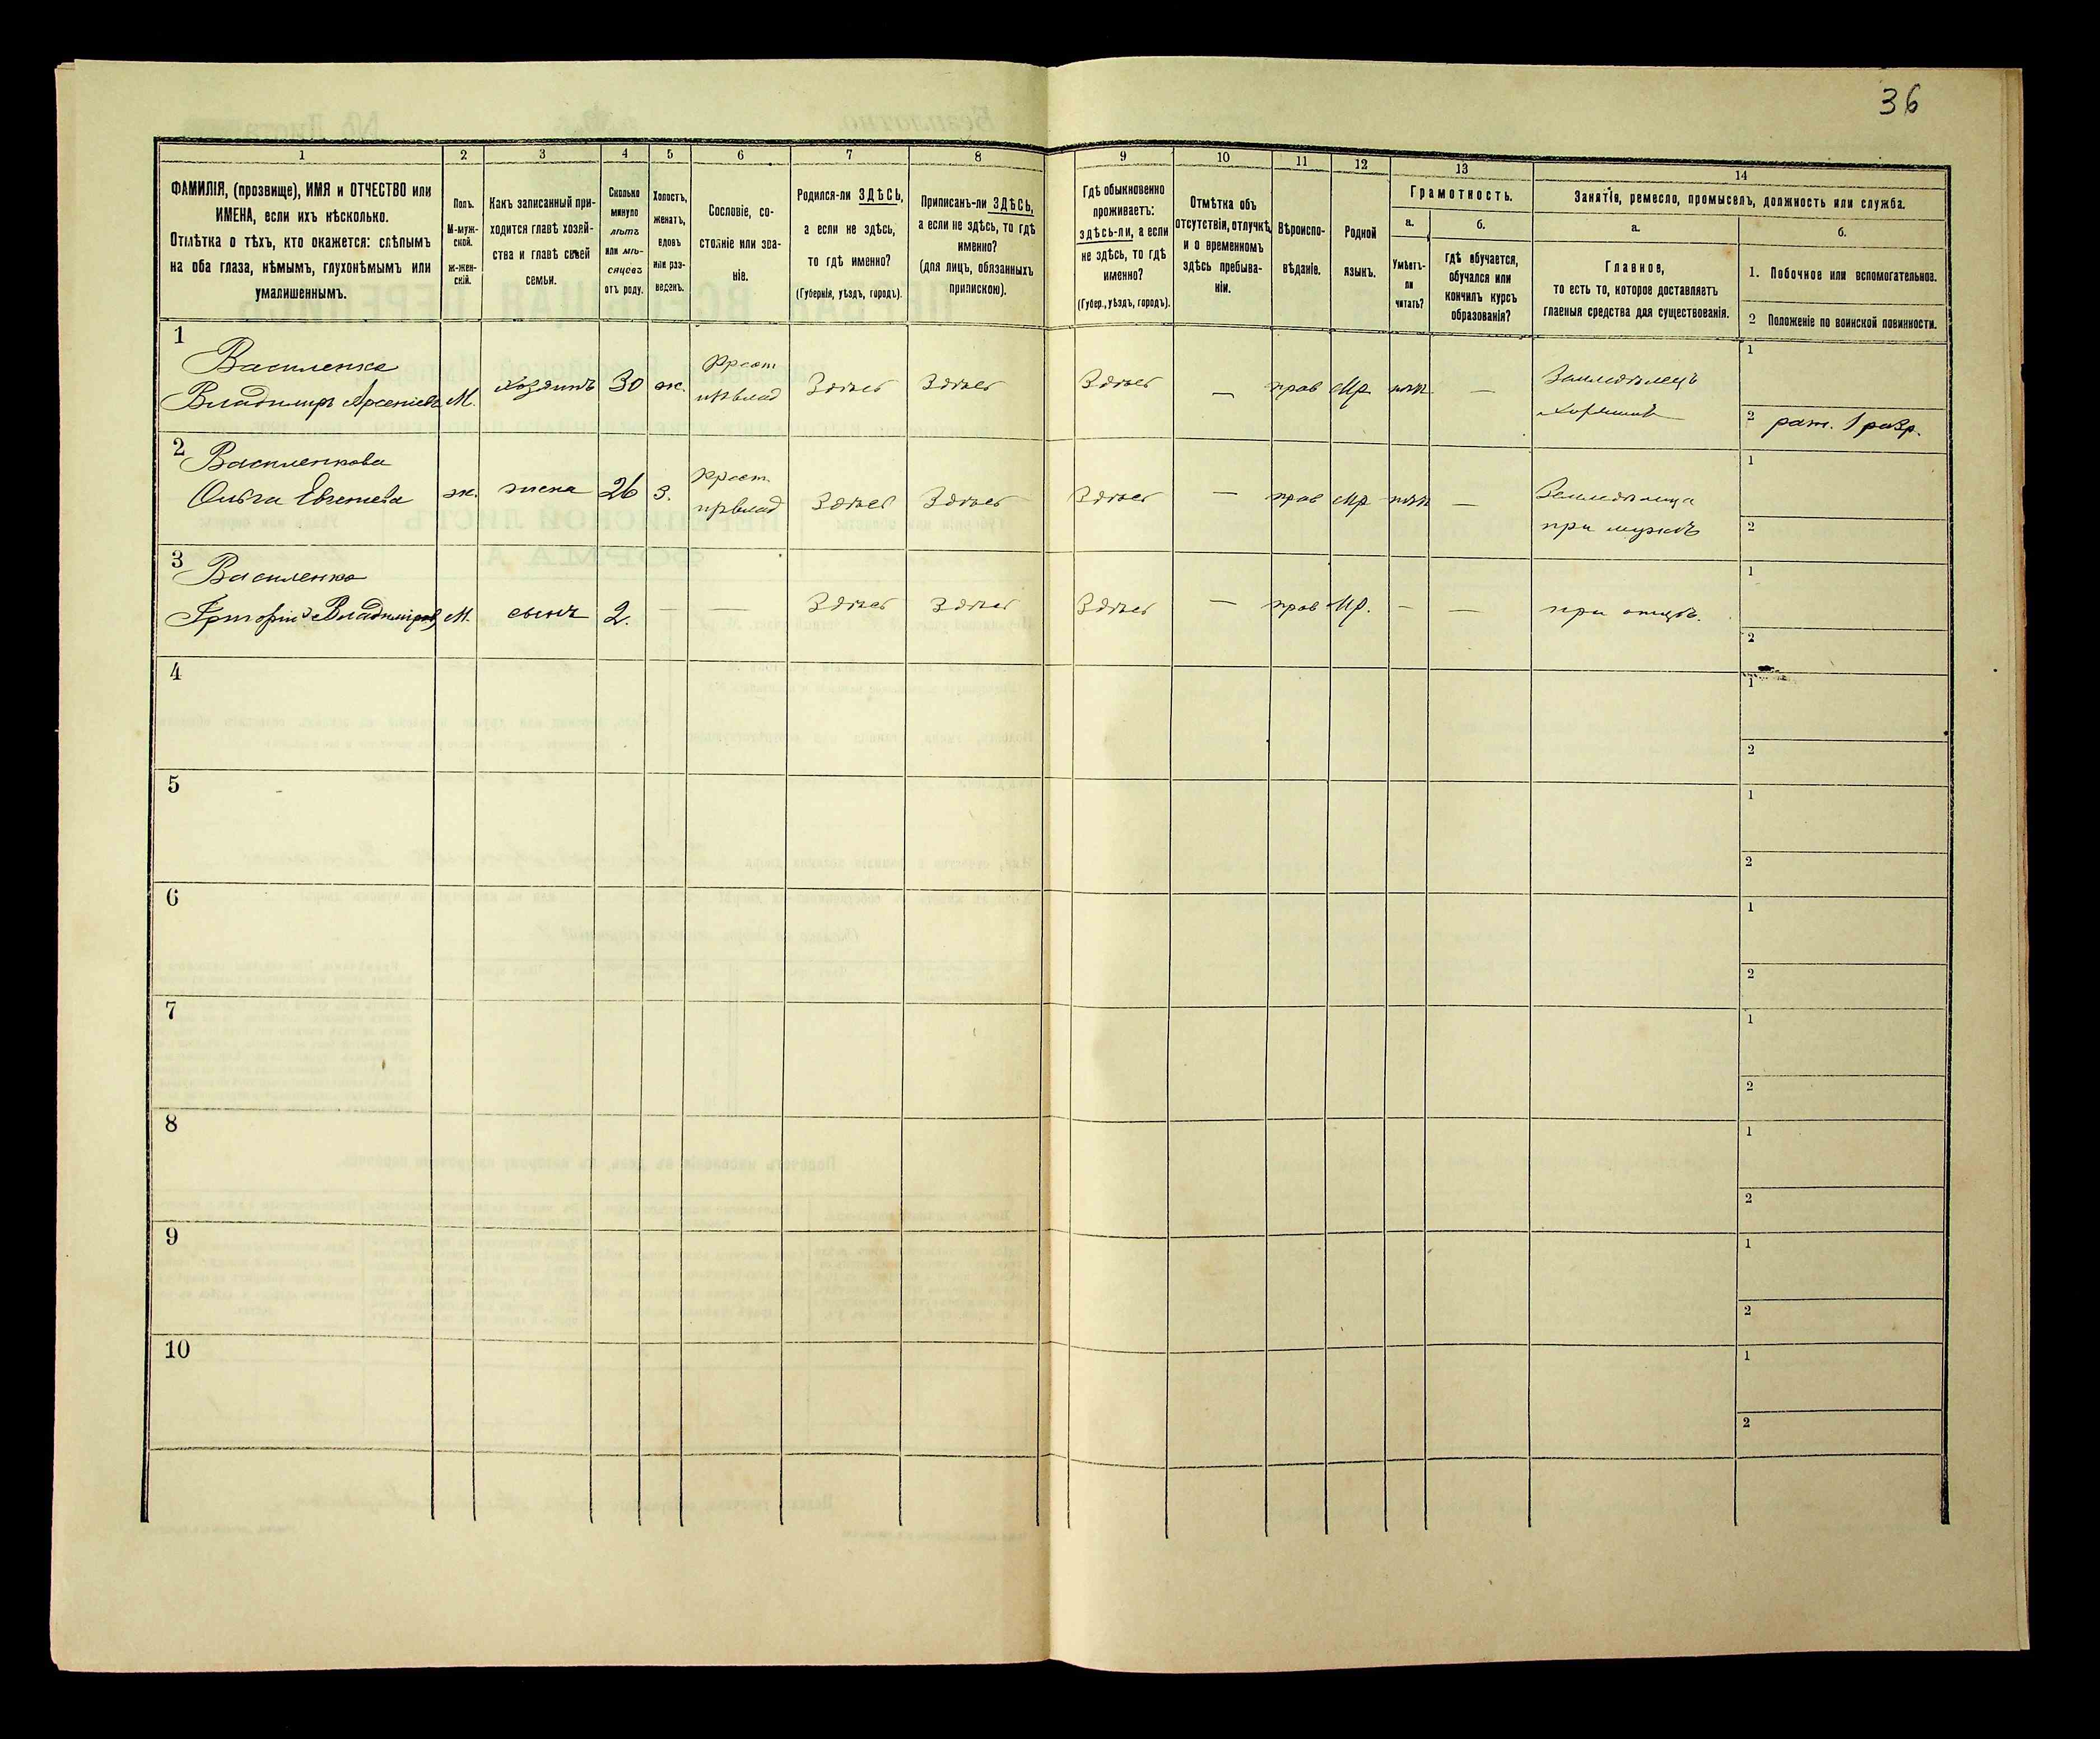 36
1 2 3 4 5 6 7 8 9 10 11 12 13 14
ФАМИЛІЯ, (прозвище), ИМЯ и ОТЧЕСТВО или
ИМЕНА, если ихъ нѣсколько.
Отмѣтка о тѣхъ, кто окажется: слѣпымъ
на оба глаза, нѣмымъ, глухонѣмымъ или
умалишеннымъ.
Полъ.
М-муж-
ской.
ж-жен-
скій.
Какъ записанный при-
ходится главѣ хозяй-
ства и главѣ своей
семьи.
Сколько
минуло
лѣтъ
или мѣ-
сяцевъ
отъ роду.
Холостъ,
женатъ,
вдовъ
или раз-
веденъ.
Сословіе, со-
стояніе или зва-
ніе.
Родился-ли ЗДѢСЬ,
а если не здѣсь,
то гдѣ именно?
(Губернія, уѣздъ, городъ).
Приписанъ-ли ЗДѢСЬ,
а если не здѣсь, то гдѣ
именно?
(для лицъ, обязанныхъ
припискою).
Гдѣ обыкновенно
проживаетъ:
здѣсь-ли, а если
не здѣсь, то гдѣ
именно?
(Губер., уѣздъ, городъ).
Отмѣтка объ
отсутствіи, отлучкѣ,
и о временномъ
здѣсь пребыва-
ніи.
Вѣроиспо-
вѣданіе.
Родной
языкъ.
Грамотность.
а.
Умѣетъ-
ли
читать?
б.
гдѣ обучается,
обучался или
кончилъ курсъ
образованія?
Занятіе, ремесло, промыселъ, должность или служба.
а.
Главное,
то есть то, которое доставляетъ
главныя средства для существованія.
б.
1. Побочное или вспомогательное.
2 Положеніе по воинской повинности.
1
Василенко
Владимиръ Арсеніевъ М. хозяинъ 30 ж. Крест Здѣсь Здѣсь Здѣсь — прав Мр — Земледѣлецъ
хозяинъ
1
2 рат. 1 разр.
2
Василенкова
Ольга ж. жена 26 з. Крест Здѣсь Здѣсь Здѣсь — прав Мр —
при мужѣ
1
2
3
Василенко
Григорій Владиміровъ М. сынъ 2. — — Здѣсь Здѣсь Здѣсь — прав Мр. — — при отцѣ.
1
2
4
1
2
5
1
2
6
1
2
7
1
2
8
1
2
9
1
2
10
1
2